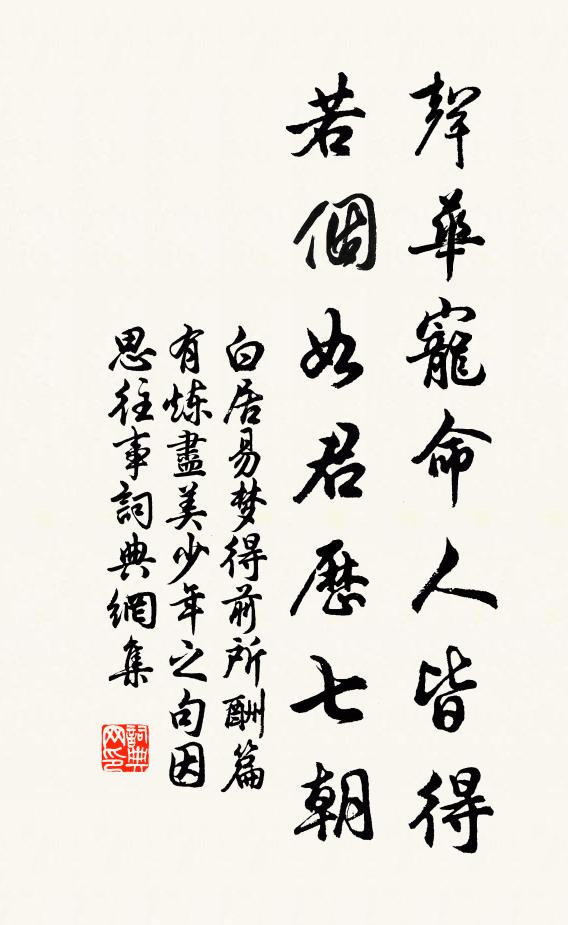 聲華寵命人皆得
若個如君歷七朝
白居易梦得前所酬篇
有炼盡美少年之句因
思往事詞典網集
詞典
网印